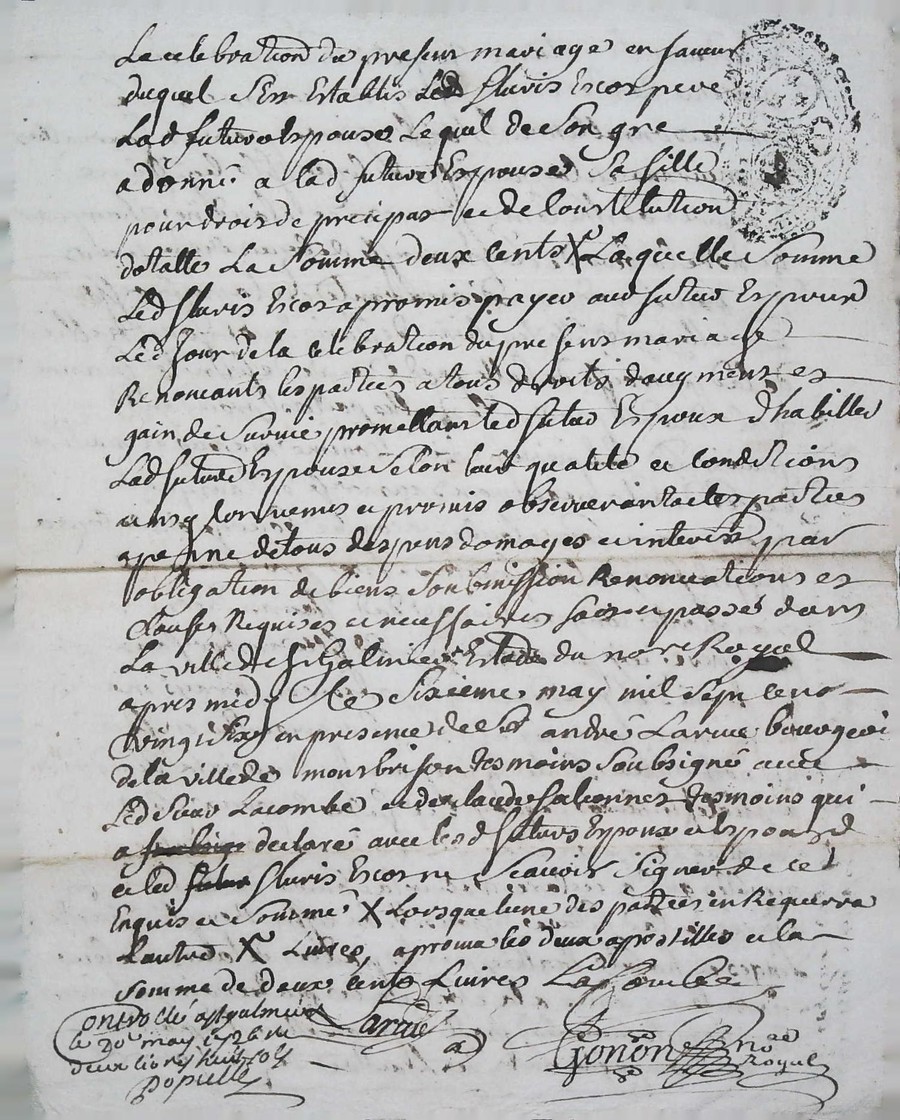 La celebration du present mariage en faveur
duquel s'est establis led fluris Escot pere
lad future Espouse Lequel de son gre
a donné a lad future Espouse sa fille
pour droit de precipat et de Constitution
dotalle La somme deux cents X Laquelle somme
Led fluris Escot a promis payer aud futur Espoux
led Jour de la celebration du present mariage
Renoncants les parties a tous droits daugment et
gain de survie promettant led futur Espoux d'habiller
Lad future Espouse selon leur qualité et conditions
ainsy convenus et promis observer par les parties
a peine de tous despens domages et interests par
obligation de biens soubmission Renonciations et
clauses Requises et necessaires fait et passé dans
La ville de st Galmier Estude du no.re Royal
apres midy le sixieme may mil sept cent
vingt six en presence de sr andré Larue bourgeoi
de la ville de montbrison tesmoins soubsigné avec
Led sieur Lacombe et de claude tesmoins qui
a declaré avec lesd futurs Espoux et Espouse
et led fluris Escot ne scavoir signer de ce
Enquis et sommé X Lorsque lune des parties en Requerra
Lautre X Livres, aprouva les deux apostilles et la
somme de deux cents Livres La Combe
Controllé a st galmier Larue
le 20 may 1726 R Gonon no.re
deux livres huit sols Royal